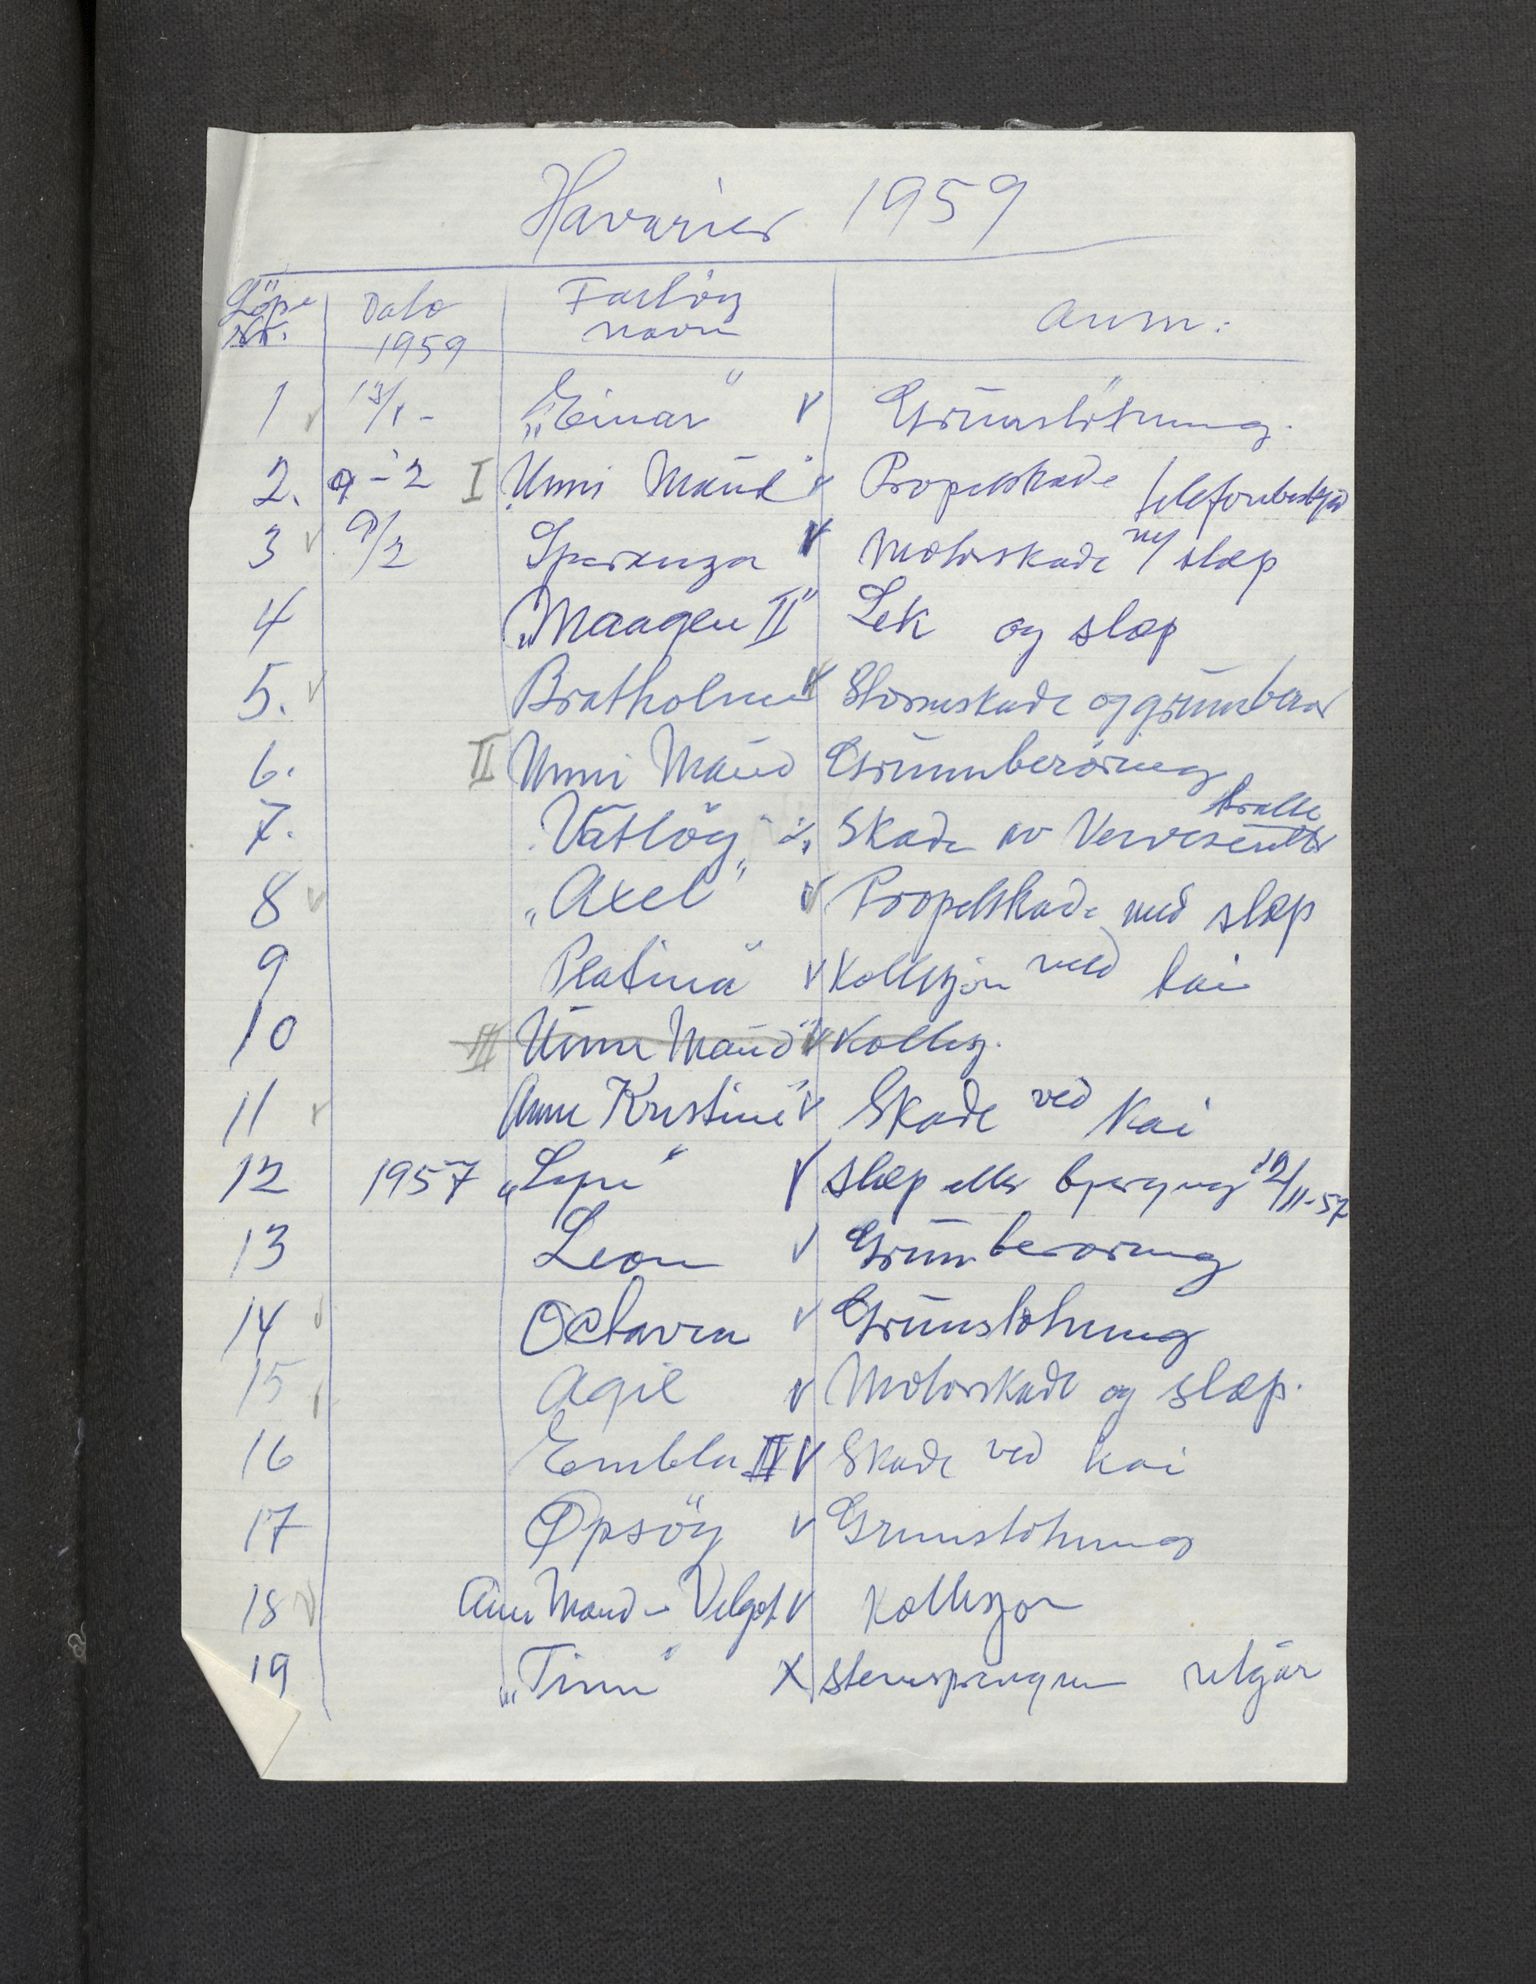 Havarier 1959
Löpe Nr. Dato 1959 Fartöy navn Anm:
1 13/1- „Einar" v Grunnstötning.
2. 9-2 I „Unni Maud" v Propelskade telefonbeskjed
3 v 9/2 Speranza v Motorskade m/ slæp
4 „Maagen II" Lek og slæp
5. v Bratholmen v Stormskade og grunnberør
6. II Unni Maud Grunnberøring
7. Vatlöy" Skade av tralle
8 v „Axel" v Propelskade med slæp
9 Platina" v Kollisjon ved kai
10 III Unni Maud" v Kollisj.
11 v Anne Kristine" v Skade ved Kai
12 1957 v slæp eller berging 12/11-57
13 Leon v Grunnberøring
14 Octavia v Grunnstøtning
15 Agil v Motorskade og slæp.
16 Embla II v Skade ved kai
17 Opsöy v Grunnstøtning
18 v Maud - v Kollisjon
19 „Tinn" X utgår